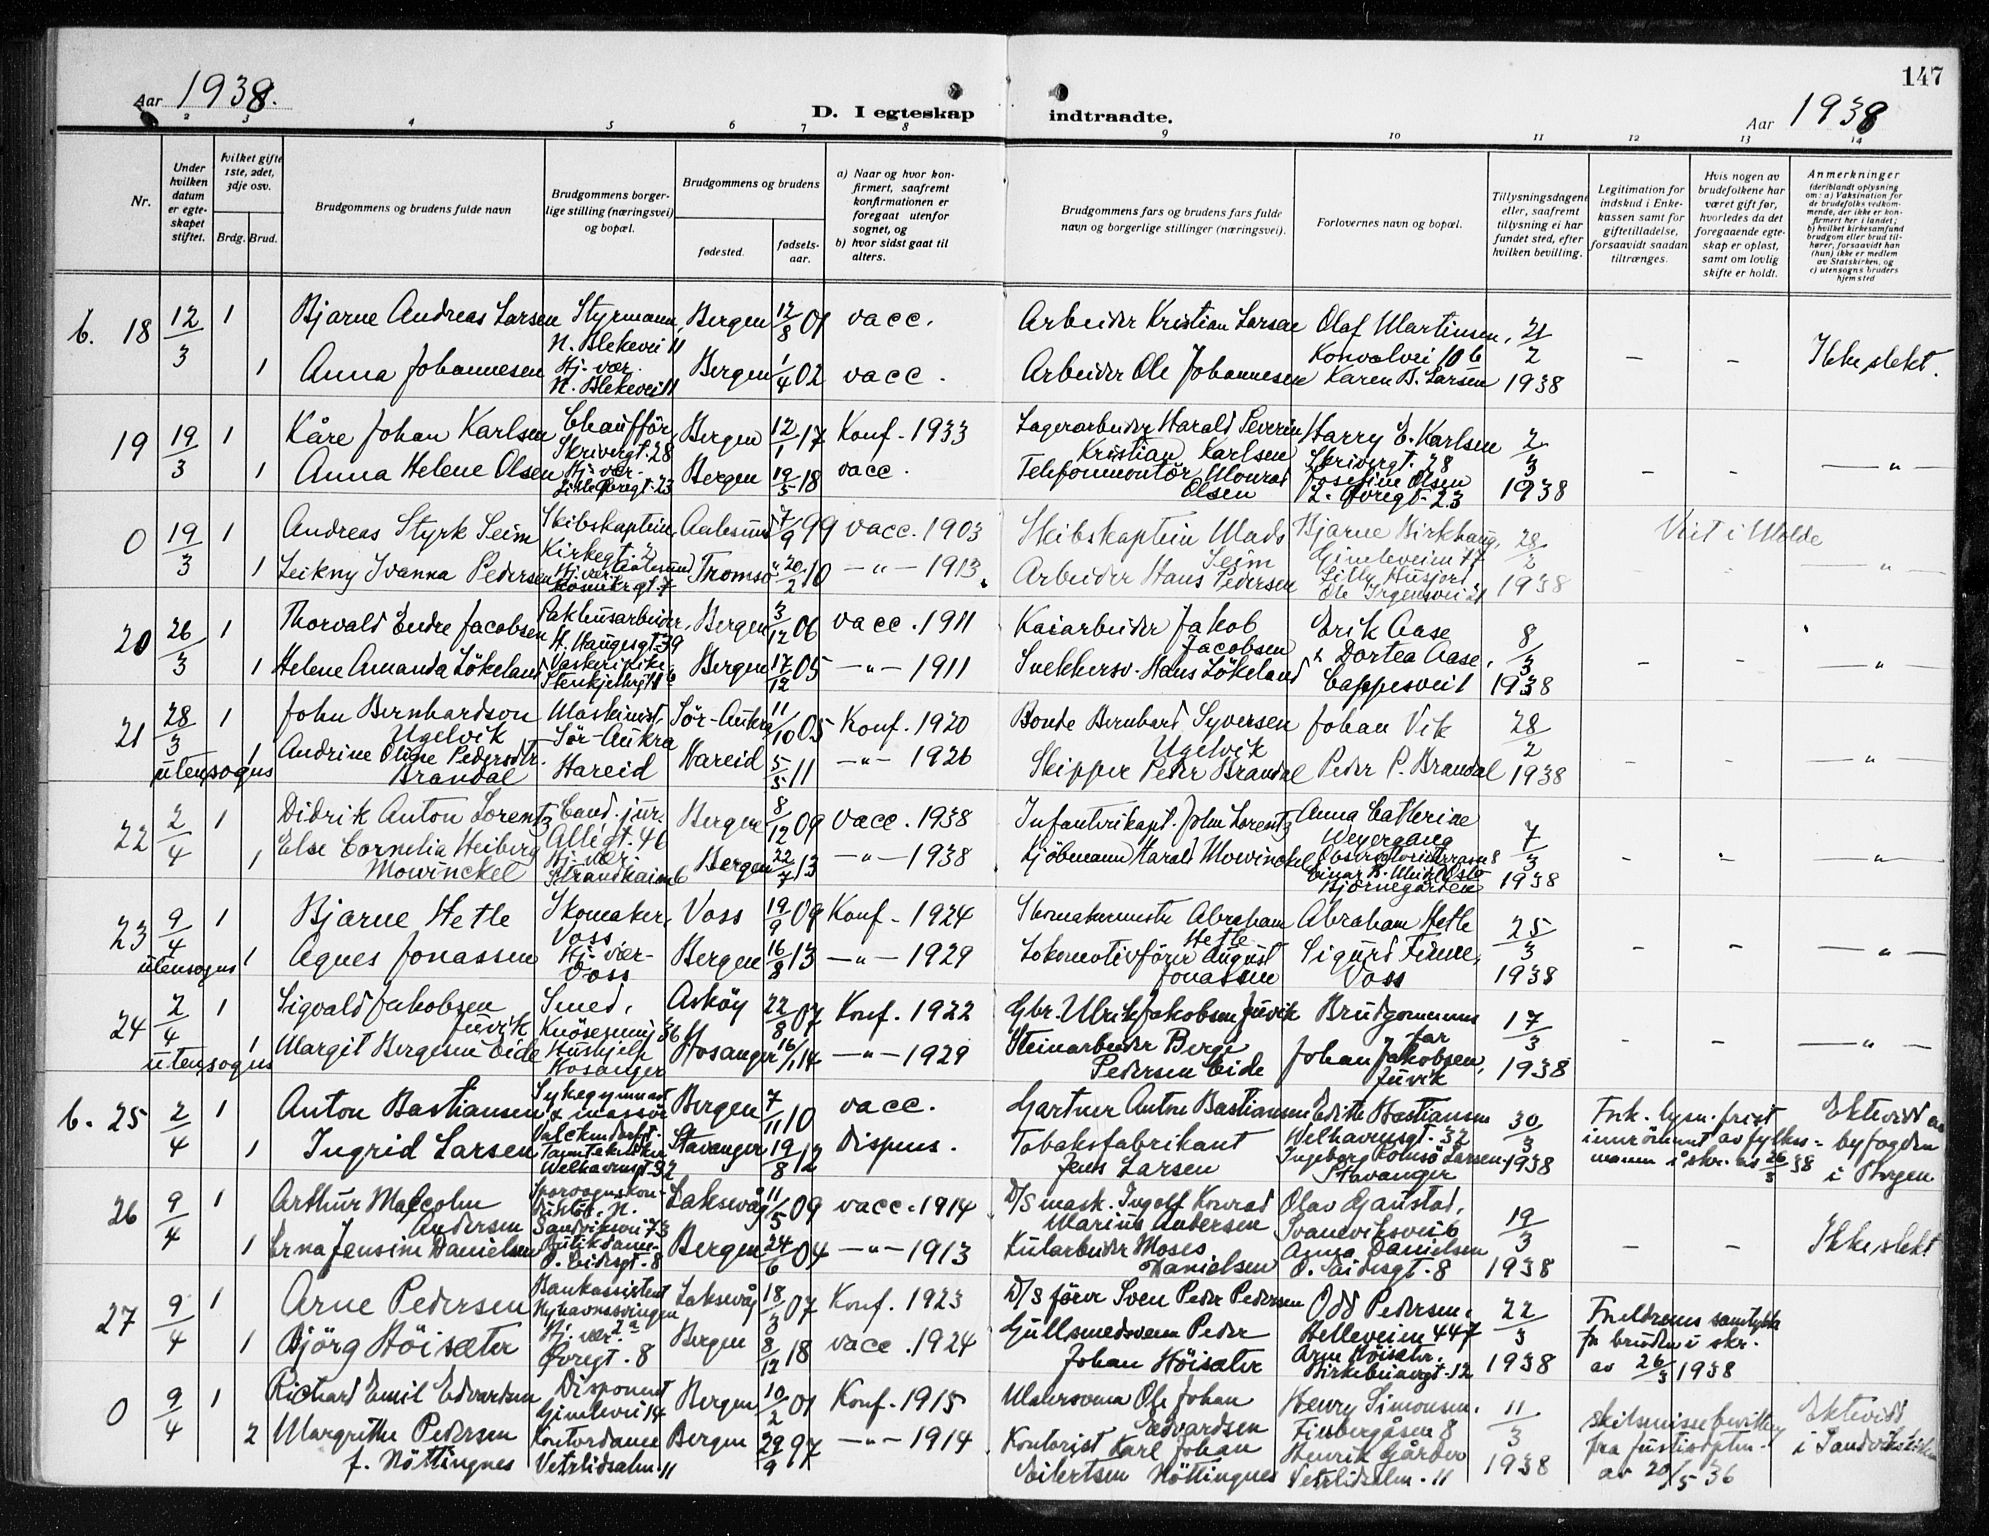 Aar 1938.
D. I egteskap indtraadte.
Aar 1938
147
2 3 4 5 6 7 8 9 10 11 12 13 14
Nr.
Under hvilken datum er egteskapet stiftet.
hvilket gifte 1ste, 2det, 3dje osv.
Brdg. Brud.
Brudgommens og brudens fulde navn
Brudgommens borgerlige stilling (næringsvei) og bopæl.
Brudgommens og brudens
fødested.
fødselsaar.
a) Naar og hvor konfirmert, saafremt konfirmationen er foregaat utenfor sognet, og
b) hvor sidst gaat til alters.
Brudgommens fars og brudens fars fulde navn og borgerlige stillinger (næringsvei).
Forlovernes navn og bopæl.
Tillysningsdagene eller, saafremt tillysning ei har fundet sted, efter hvilken bevilling.
Legitimation for indskud i Enkekassen samt for giftetilladelse, forsaavidt saadan tiltrænges.
Hvis nogen av brudefolkene har været gift før, hvorledes da det foregaaende egteskap er opløst, samt om lovlig skifte er holdt.
Anmerkninger
(deriblandt oplysning om: a) Vaksination for de brudefolks vedkommende, der ikke er konfirmert her i landet; b) hvilket kirkesamfund brudgom eller brud tilhører, forsaavidt han (hun) ikke er medlem av Statskirken, og c) utensogns bruders hjemsted
b. 18 12/3 1 Bjarne Andreas Larsen Styrmann, N. Blekevei 11 Bergen 12/8 01 vacc. Arbeider Kristian Larsen Olaf Martinsen, Konvalvei 10 b 21/2 1938 – – Ikke slekt.
1 Anna Johannesen Hj. vær. N. Blekevei 11 Bergen 1/4 02 vacc. Arbeider Ole Johannesen Karen B. Larsen
19 19/3 1 Kåre Johan Karlsen Chauffør, Skrivergt. 28 Bergen 12/1 17 Konf. 1933 Lagerarbeider Harald Severin Kristian Karlsen Harry E. Karlsen Skrivergt. 28 2/3 1938 – – — " —
1 Anna Helene Olsen Hj. vær. Lille Øvregt. 23 Bergen 19/5 18 vacc. Telefonmontör Monrad Olsen Josefine Olsen L. Øvregt. 23
0 19/3 1 Andreas Styrk Seim Skibskaptein, Kirkegt. 2 Aalesund Aalesund 7/9 99 vacc. 1903 Skibskaptein Mads Seim Bjarne Birkhaug, Gimleveien 17 28/2 1938 Viet i Molde
1 Leikny Ivanna Pedersen Hj. vær. Tromsø 20/2 10 — " — 1913. Arbeider Hans Pedersen Lilly Husjord Ole Irgensvei 21 — " —
20 26/3 1 Thorvald Endre Jacobsen Pakhusarbeider, H. Haugesgt. 39 Bergen 3/12 06 vacc. 1911 Kaiarbeider Jakob Jacobsen Erik Aase 8/3 1938
1 Helene Amanda Lökeland Bergen 17/12 05 — " — 1911 Snekkersv. Hans Lökeland & Dortea Aase, Cappesvei 1 – – — " —
21 28/3 utensogns 1 John Bernhardson Ugelvik Maskinist, Sör-Aukra Sör-Aukra 11/10 05 Konf. 1920 Bonde Bernhard Syversen Ugelvik Johan Vik 28/2 1938
1 Andrine Oline Pedersdtr. Brandal Hareid Hareid 5/5 11 — " — 1926 Skipper Peder Brandal Peder P. Brandal – – — " —
22 2/4 1 Didrik Anton Lorentz Cand. jur. Allégt. 46 Bergen 8/12 09 vacc. 1938 Infanterikapt. John Lorentz Anna Catherine Weyergang 7/3 1938
1 Else Cornelia Heiberg Mowinckel Hj. vær. Strandkaien 6 Bergen 22/7 13 — " — 1938 Kjöbmann Harald Mowinckel Bjørnegården – – — " —
23 9/4 utensogns 1 Bjarne Hetle Skomaker, Voss Voss 19/9 09 Konf. 1924 Skomakermester Abraham Hetle Abraham Hetle 25/3 1938
1 Agnes Jonassen Hj. vær. Voss Bergen 16/8 13 — " — 1929 Lokomotivfører August Jonassen Sigurd Finne, Voss – – — " —
24 2/4 utensogns 1 Sigvald Jakobsen Juvik Smed, Knösesmug 36 Askøy 22/8 07 Konf. 1922 Gbr. Ulrik Jakobsen Juvik Brudgommens far 17/3 1938
1 Margit Bergesen Eide Hushjelp Hosanger Hosanger 16/1 14 — " — 1929 Steinarbeider Berge Pedersen Eide Johan Jakobsen, Juvik – – — " —
b. 25 2/4 1 Anton Bastiansen Sykegymnast & massør Bergen 7/11 10 vacc. Gartner Anton Bastiansen Edith Bastiansen Welhavensgt. 32 30/3 1938 Fork. lysn. frist innrömmet av fylkesmann i skr. av 26/3 38 Ektevidd av byfogden i Bergen
1 Ingrid Larsen Welhavensgt. 32 Stavanger 19/8 12 Dispens. Tobaksfabrikant Jens Larsen Ingeborg Larsen, Stavanger
26 9/4 1 Arthur Malcolm Andersen Sporvognskonduktør, N. Sandviksvei 73 Laksevåg 11/5 09 vacc. 1914 D/S mask. Ingolf Konrad Marius Andersen Olav Gaustad, Svaneviksvei 6 19/3 1938
1 Erna Jensine Danielsen Butikdame P. Eidesgt. 8 Bergen 24/6 04 — " — 1913 Kularbeider Moses Danielsen Anna Danielsen O. Eidesgt. 8 – – Ikke slekt
27 9/4 1 Arne Pedersen Bankassistent Nyhavnssvingen 2a Laksevåg 18/3 07 Konf. 1923 D/S fører Sven Peder Pedersen Odd Pedersen, Helleveien 447 22/3 1938 Foreldrenes samtykke for bruden i skr. av 26/3 1938
1 Björg Höisæter Hj. vær. Øvregt. 8 Bergen 8/12 18 vacc. 1924 Gullsmedsvenn Peder Johan Höisæter Arne Höisæter, Birkebeinergt. 12
0 9/4 1 Richard Emil Edvardsen Disponent Gimlevei 14 Bergen 10/2 01 Konf. 1915 Malersvenn Ole Johan Edvardsen Henry Simonsen, Finbergåsen 8 11/3 1938 skilsmissebevilling fra Justisdptm. av 20/5 36 Ektevidd i Sandvikskirken
2 Margrethe Pedersen f. Nöttingnes Kontordame Vetrlidsalm. 11 Bergen 29/9 97 — " — 1914 Kontorist Karl Johan Eilertsen Nöttingnes Henrik Gårder Vetrlidsalm. 11